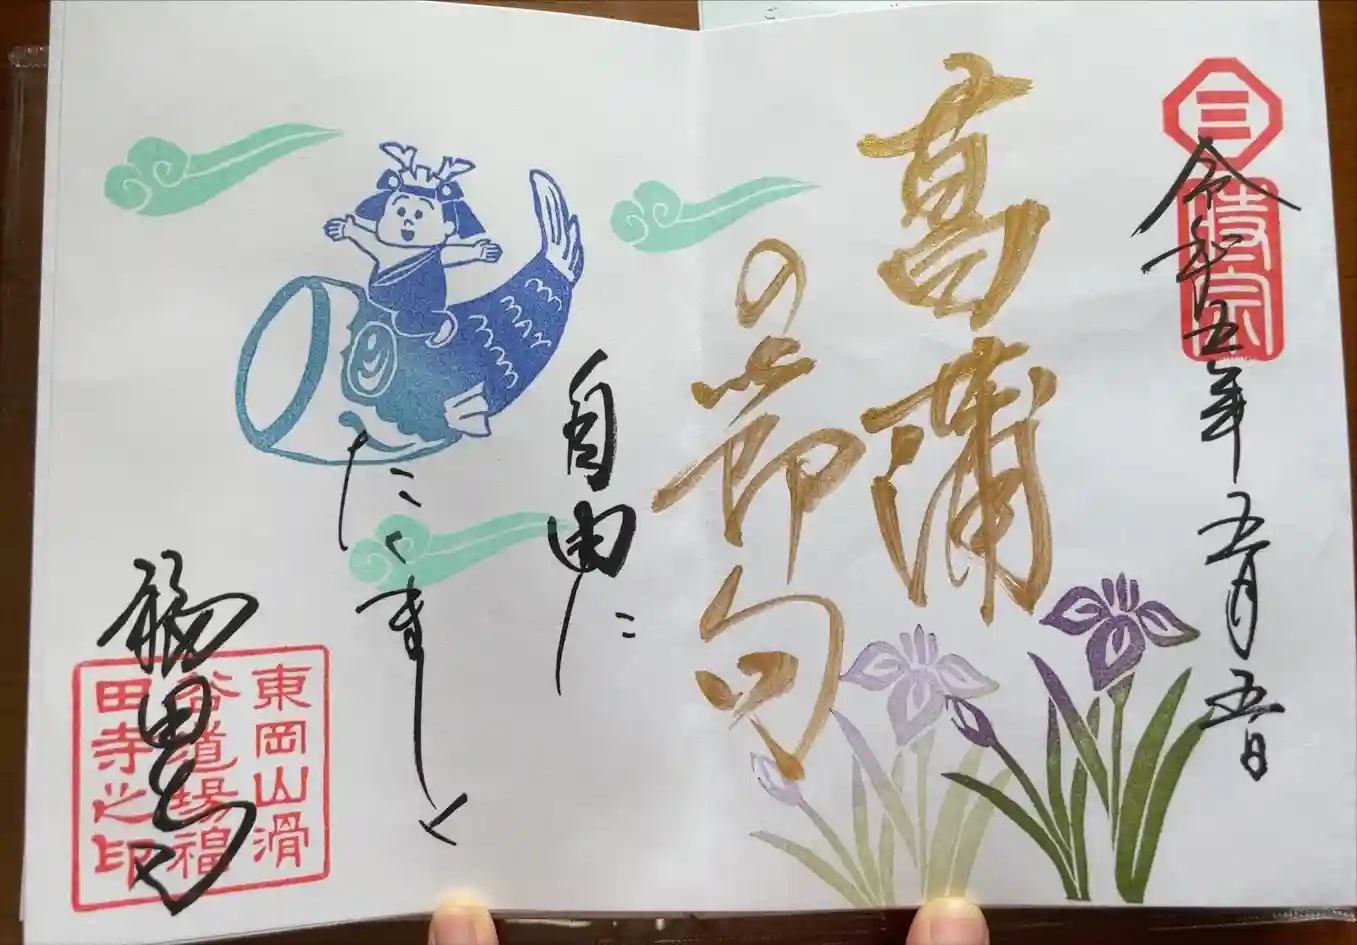 三
時宗
令和五年五月五日
菖蒲
の節句
自由に
たくましく
福田寺
東岡山滑
谷道場福
田寺之印